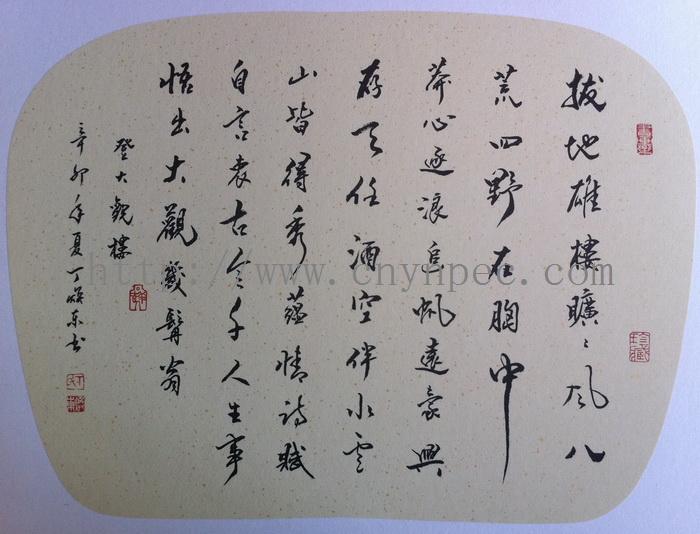 拔地雄樓曠〻風八
荒四野在胸中
莽心逐浪追帆遠豪興
存天任酒空伴水雲
山皆得秀蕴情詩賦
自言衷古今千人生事
悟出大觀髯翁
登大觀樓
辛卯年夏丁焕東书
http://www.cnynpec.com